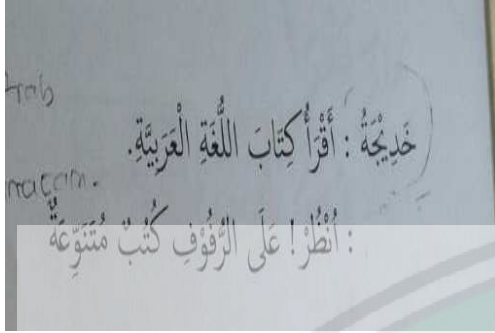 خَدِيْجَةُ : أَقْرَأُ كِتَابَ اللُّغَةِ الْعَرَبِيَّةِ.
: اُنْظُرْ! عَلَى الرُّفُوْفِ كُتُبٌ مُتَنَوِّعَةٌ